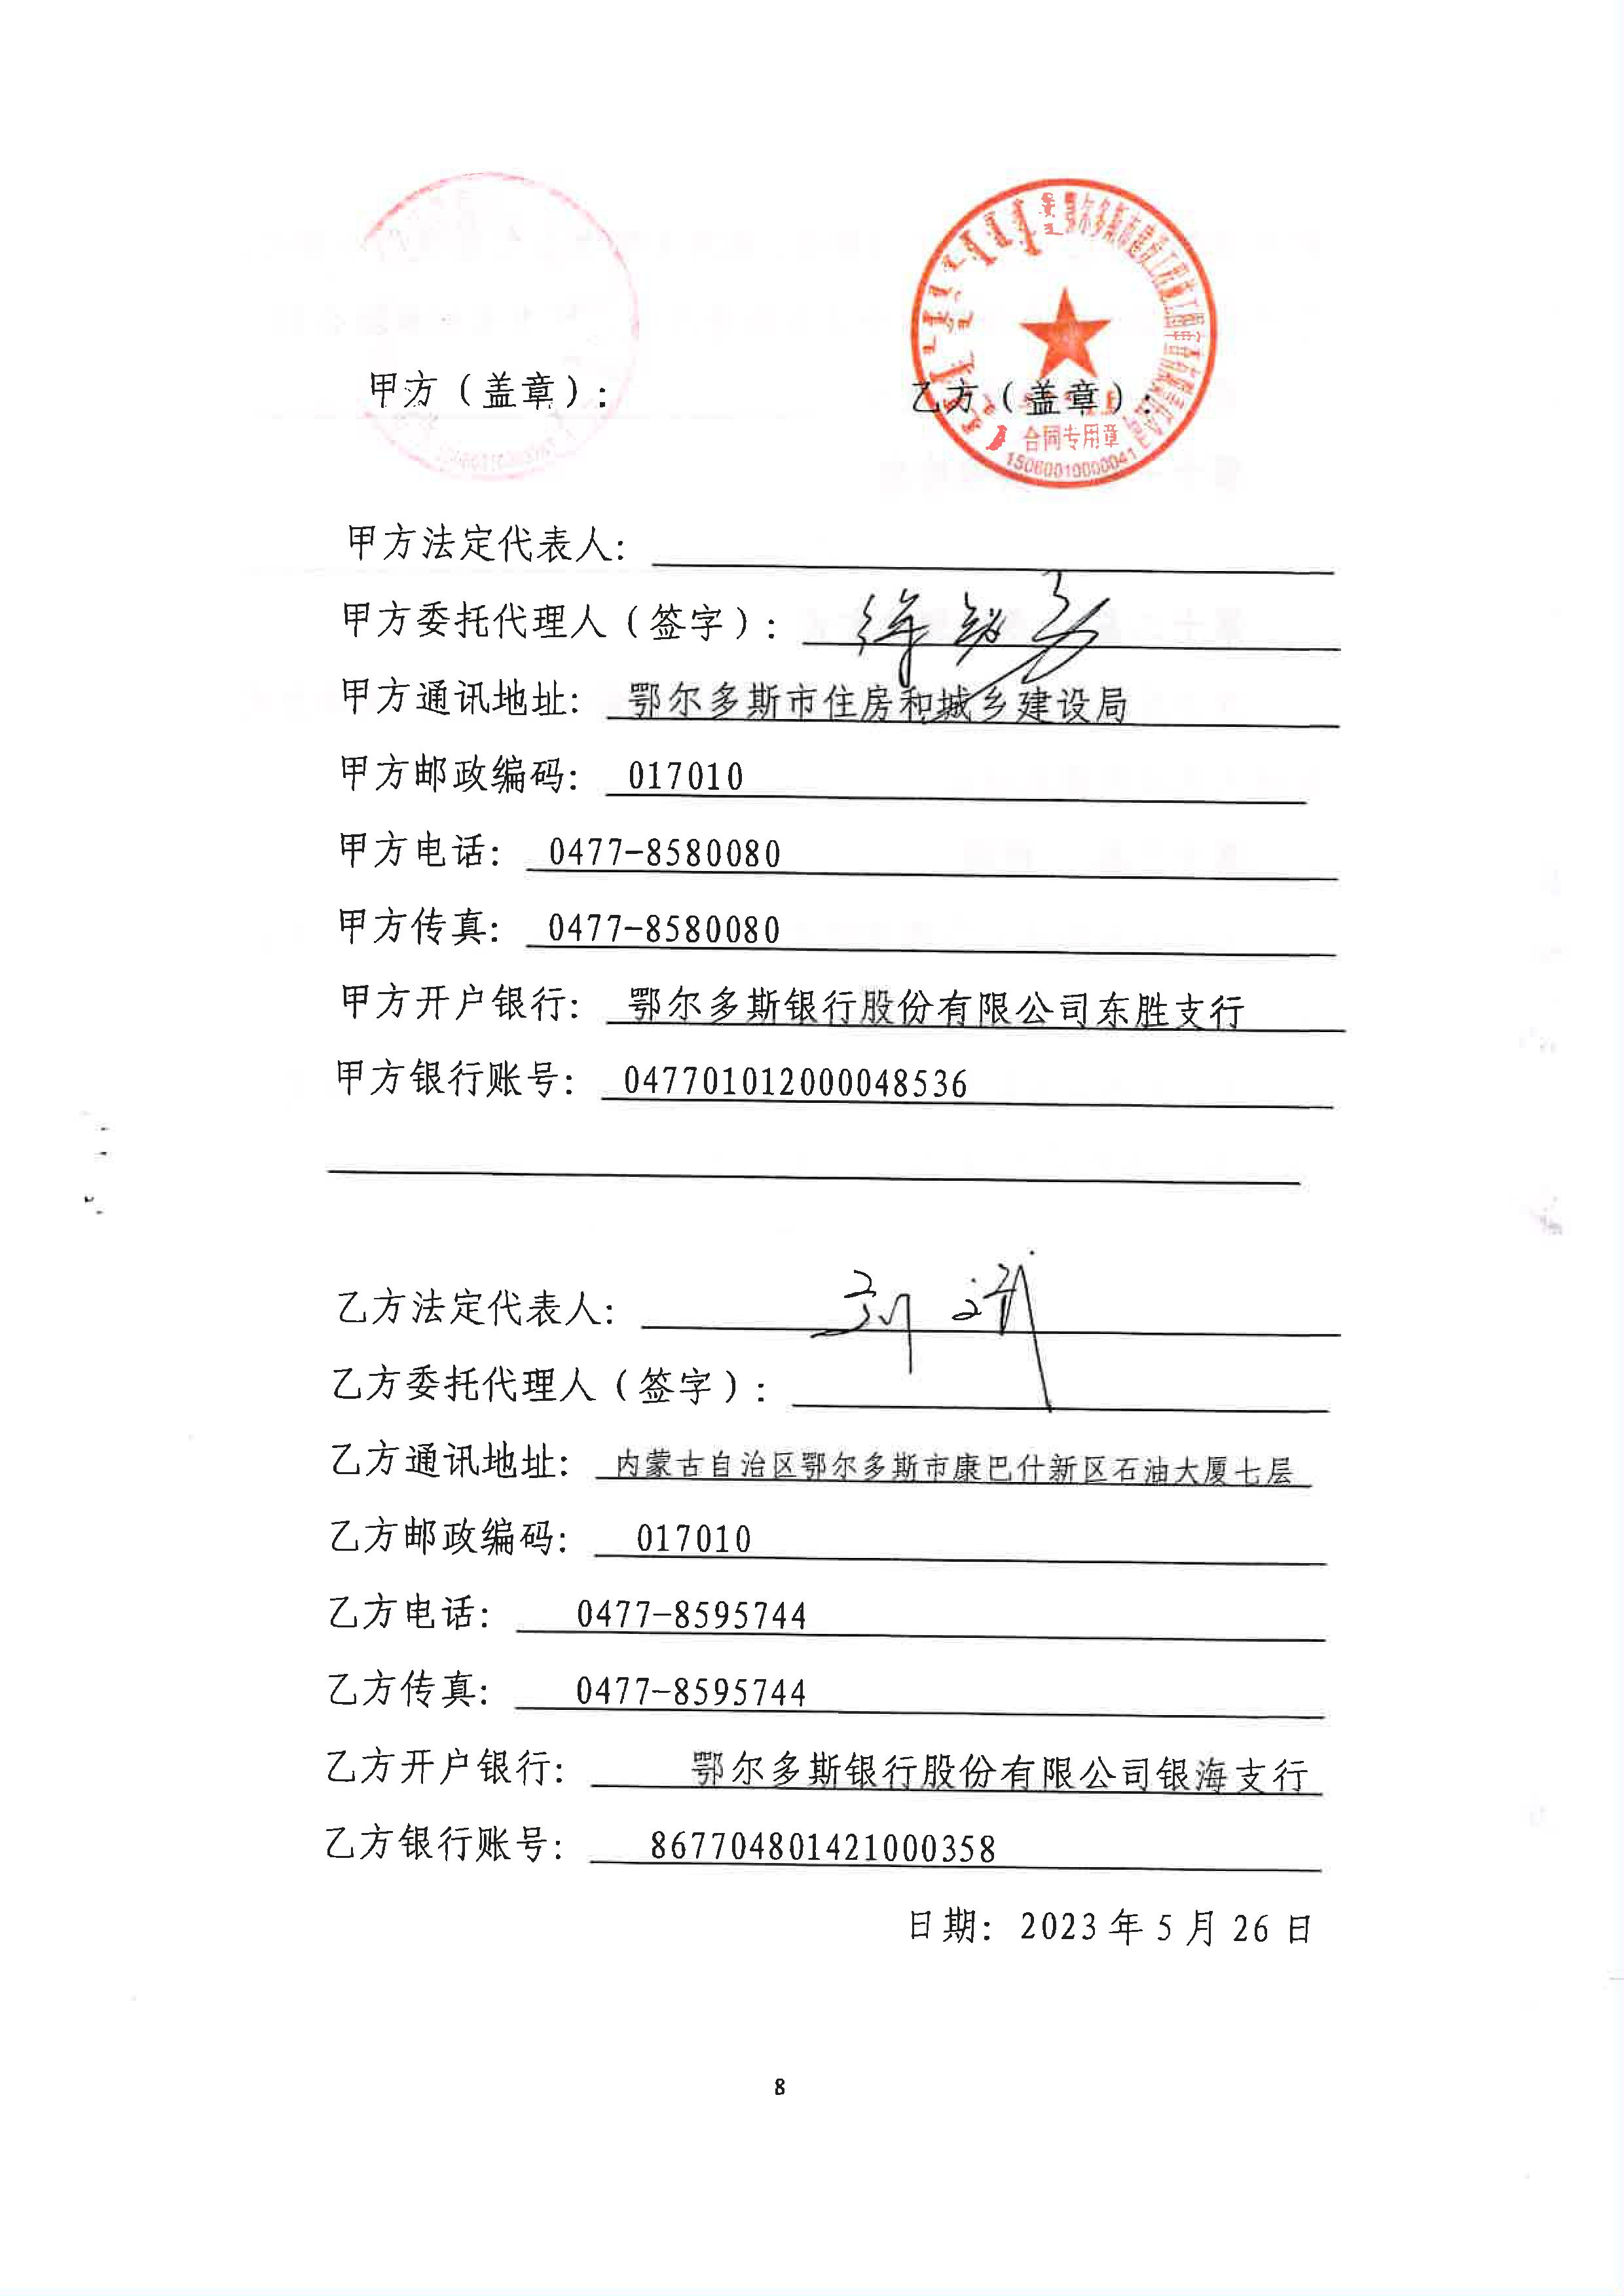 甲方（盖章）：
乙方（盖章）：
合同专用章
15060010000041
甲方法定代表人：
甲方委托代理人（签字）：
甲方通讯地址： 鄂尔多斯市住房和城乡建设局
甲方邮政编码： 017010
甲方电话： 0477-8580080
甲方传真： 0477-8580080
甲方开户银行： 鄂尔多斯银行股份有限公司东胜支行
甲方银行账号： 047701012000048536
乙方法定代表人：
乙方委托代理人（签字）：
乙方通讯地址： 内蒙古自治区鄂尔多斯市康巴什新区石油大厦七层
乙方邮政编码： 017010
乙方电话： 0477-8595744
乙方传真： 0477-8595744
乙方开户银行： 鄂尔多斯银行股份有限公司银海支行
乙方银行账号： 867704801421000358
日期： 2023 年 5 月 26 日
8